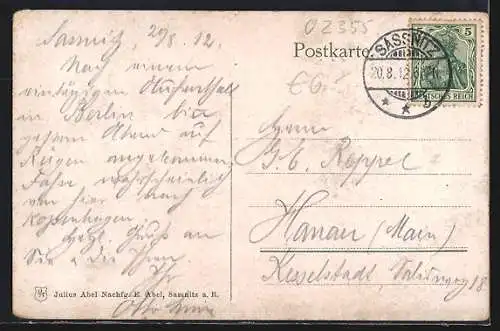 Sassnitz, 20/8. 12.
02355
Postkarte
SASSNITZ
20.8.12
5
DEUTSCHES REICH
Nach einem
eintägigen Aufenthalt
in Berlin bin
gestern Abend auf
Rügen angekommen
Fahre wahrscheinlich
von hier nach
Kopenhagen.
Herzl. Gruss an
Sie &
Ihr
Otto
Herrn
G. C. Keppel
Hanau (Main)
Kesselstadt, 18
Julius Abel Nachfg. E. Abel, Sassnitz a. R.